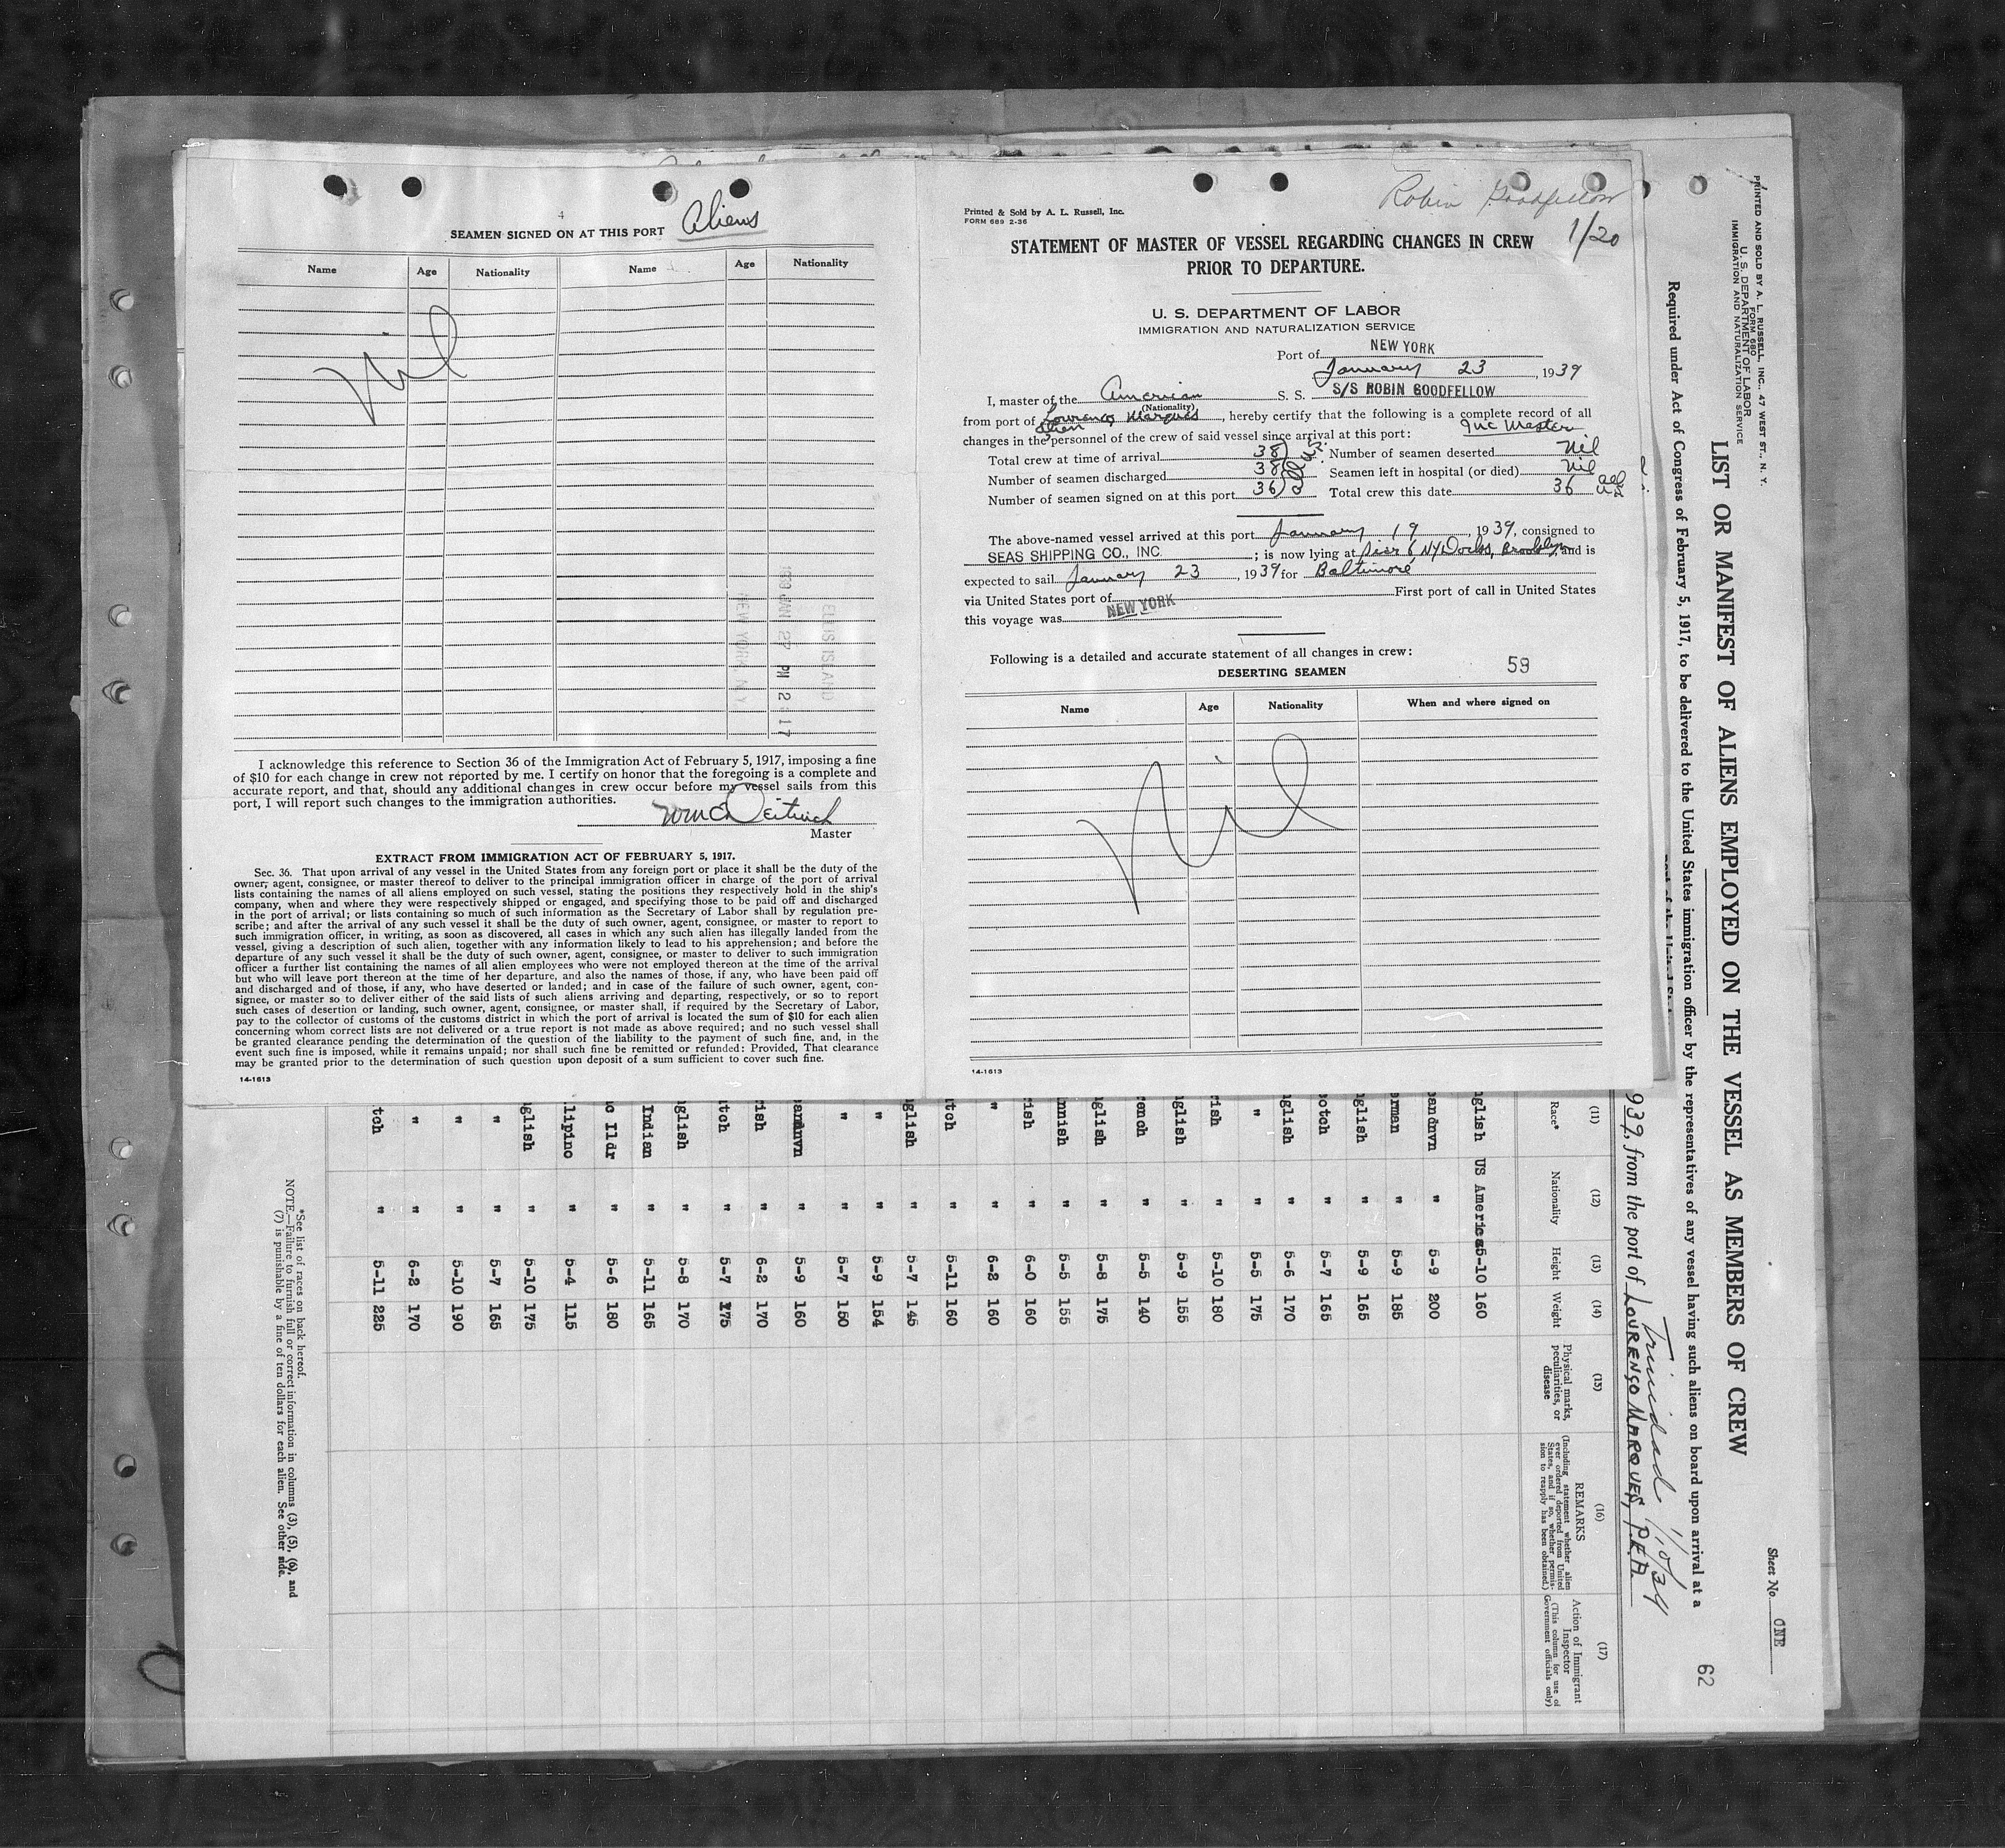 4
SEAMEN SIGNED ON AT THIS PORT Aliens
Name Age Nationality Name Age Nationality
Nil
ELLIS ISLAND
1939 JAN 27 PM 2 17
NEW YORK N Y
I acknowledge this reference to Section 36 of the Immigration Act of February 5, 1917, imposing a fine
of $10 for each change in crew not reported by me. I certify on honor that the foregoing is a complete and
accurate report, and that, should any additional changes in crew occur before my vessel sails from this
port, I will report such changes to the immigration authorities.
Master
EXTRACT FROM IMMIGRATION ACT OF FEBRUARY 5, 1917.
Sec. 36. That upon arrival of any vessel in the United States from any foreign port or place it shall be the duty of the
owner, agent, consignee, or master thereof to deliver to the principal immigration officer in charge of the port of arrival
lists containing the names of all aliens employed on such vessel, stating the positions they respectively hold in the ship's
company, when and where they were respectively shipped or engaged, and specifying those to be paid off and discharged
in the port of arrival; or lists containing so much of such information as the Secretary of Labor shall by regulation pre-
scribe; and after the arrival of any such vessel it shall be the duty of such owner, agent, consignee, or master to report to
such immigration officer, in writing, as soon as discovered, all cases in which any such alien has illegally landed from the
vessel, giving a description of such alien, together with any information likely to lead to his apprehension; and before the
departure of any such vessel it shall be the duty of such owner, agent, consignee, or master to deliver to such immigration
officer a further list containing the names of all alien employees who were not employed thereon at the time of the arrival
but who will leave port thereon at the time of her departure, and also the names of those, if any, who have been paid off
and discharged and of those, if any, who have deserted or landed; and in case of the failure of such owner, agent, con-
signee, or master so to deliver either of the said lists of such aliens arriving and departing, respectively, or so to report
such cases of desertion or landing, such owner, agent, consignee, or master shall, if required by the Secretary of Labor,
pay to the collector of customs of the customs district in which the port of arrival is located the sum of $10 for each alien
concerning whom correct lists are not delivered or a true report is not made as above required; and no such vessel shall
be granted clearance pending the determination of the question of the liability to the payment of such fine, and, in the
event such fine is imposed, while it remains unpaid; nor shall such fine be remitted or refunded: Provided, That clearance
may be granted prior to the determination of such question upon deposit of a sum sufficient to cover such fine.
14-1613
Robin Goodfellow
1/20
Printed & Sold by A. L. Russell, Inc.
FORM 689 2-36
STATEMENT OF MASTER OF VESSEL REGARDING CHANGES IN CREW
PRIOR TO DEPARTURE.
U. S. DEPARTMENT OF LABOR
IMMIGRATION AND NATURALIZATION SERVICE
Port of NEW YORK
January 23, 1939
I, master of the American S. S. S/S ROBIN GOODFELLOW
(Nationality)
from port of Lourenco Marques, hereby certify that the following is a complete record of all
alien
changes in the personnel of the crew of said vessel since arrival at this port: Inc Master
Total crew at time of arrival 38 Number of seamen deserted Nil
Number of seamen discharged 38 Seamen left in hospital (or died) Nil
Number of seamen signed on at this port 36 Total crew this date 36
The above-named vessel arrived at this port January 19, 1939, consigned to
SEAS SHIPPING CO., INC.; is now lying at Pier 6 NY Docks, Brooklyn, and is
expected to sail January 23, 1939 for Baltimore
via United States port of First port of call in United States
this voyage was NEW YORK
Following is a detailed and accurate statement of all changes in crew:
59
DESERTING SEAMEN
Name Age Nationality When and where signed on
Nil
14-1613
PRINTED AND SOLD BY A. L. RUSSELL, INC., 47 WEST ST., N. Y.
FORM 680
U. S. DEPARTMENT OF LABOR
IMMIGRATION AND NATURALIZATION SERVICE
Sheet No. ONE
62
LIST OR MANIFEST OF ALIENS EMPLOYED ON THE VESSEL AS MEMBERS OF CREW
Required under Act of Congress of February 5, 1917, to be delivered to the United States immigration officer by the representatives of any vessel having such aliens on board upon arrival at a
Trinidad 1/10/39
939, from the port of LOURENÇO MARQUES, P.E.A.
(11) (12) (13) (14) (15) (16) (17)
Race* Nationality Height Weight Physical marks, peculiarities, or disease REMARKS (Including statement whether alien ever ordered deported from United States, and if so, whether permission to reapply has been obtained.) Action of Immigrant Inspector (This column for use of Government officials only)
glish US America 5-10 160
andnvn " 5-9 200
rman " 5-9 185
glish " 5-9 165
otch " 5-7 165
glish " 5-6 170
" " 5-5 175
ish " 5-10 180
glish " 5-9 155
ench " 5-5 140
glish " 5-8 175
nnish " 5-5 155
ish " 6-0 160
" " 6-2 160
tch " 5-11 160
glish " 5-7 145
" " 5-9 154
" " 5-7 150
andnvn " 5-9 160
ish " 6-2 170
tch " 5-7 175
glish " 5-8 170
Indian " 5-11 165
c Ildr " 5-6 180
lipino " 5-4 115
glish " 5-10 175
" " 5-7 165
" " 5-10 190
" " 6-2 170
tch " 5-11 225
*See list of races on back hereof.
NOTE.—Failure to furnish full or correct information in columns (3), (5), (6), and
(7) is punishable by a fine of ten dollars for each alien. See other side.